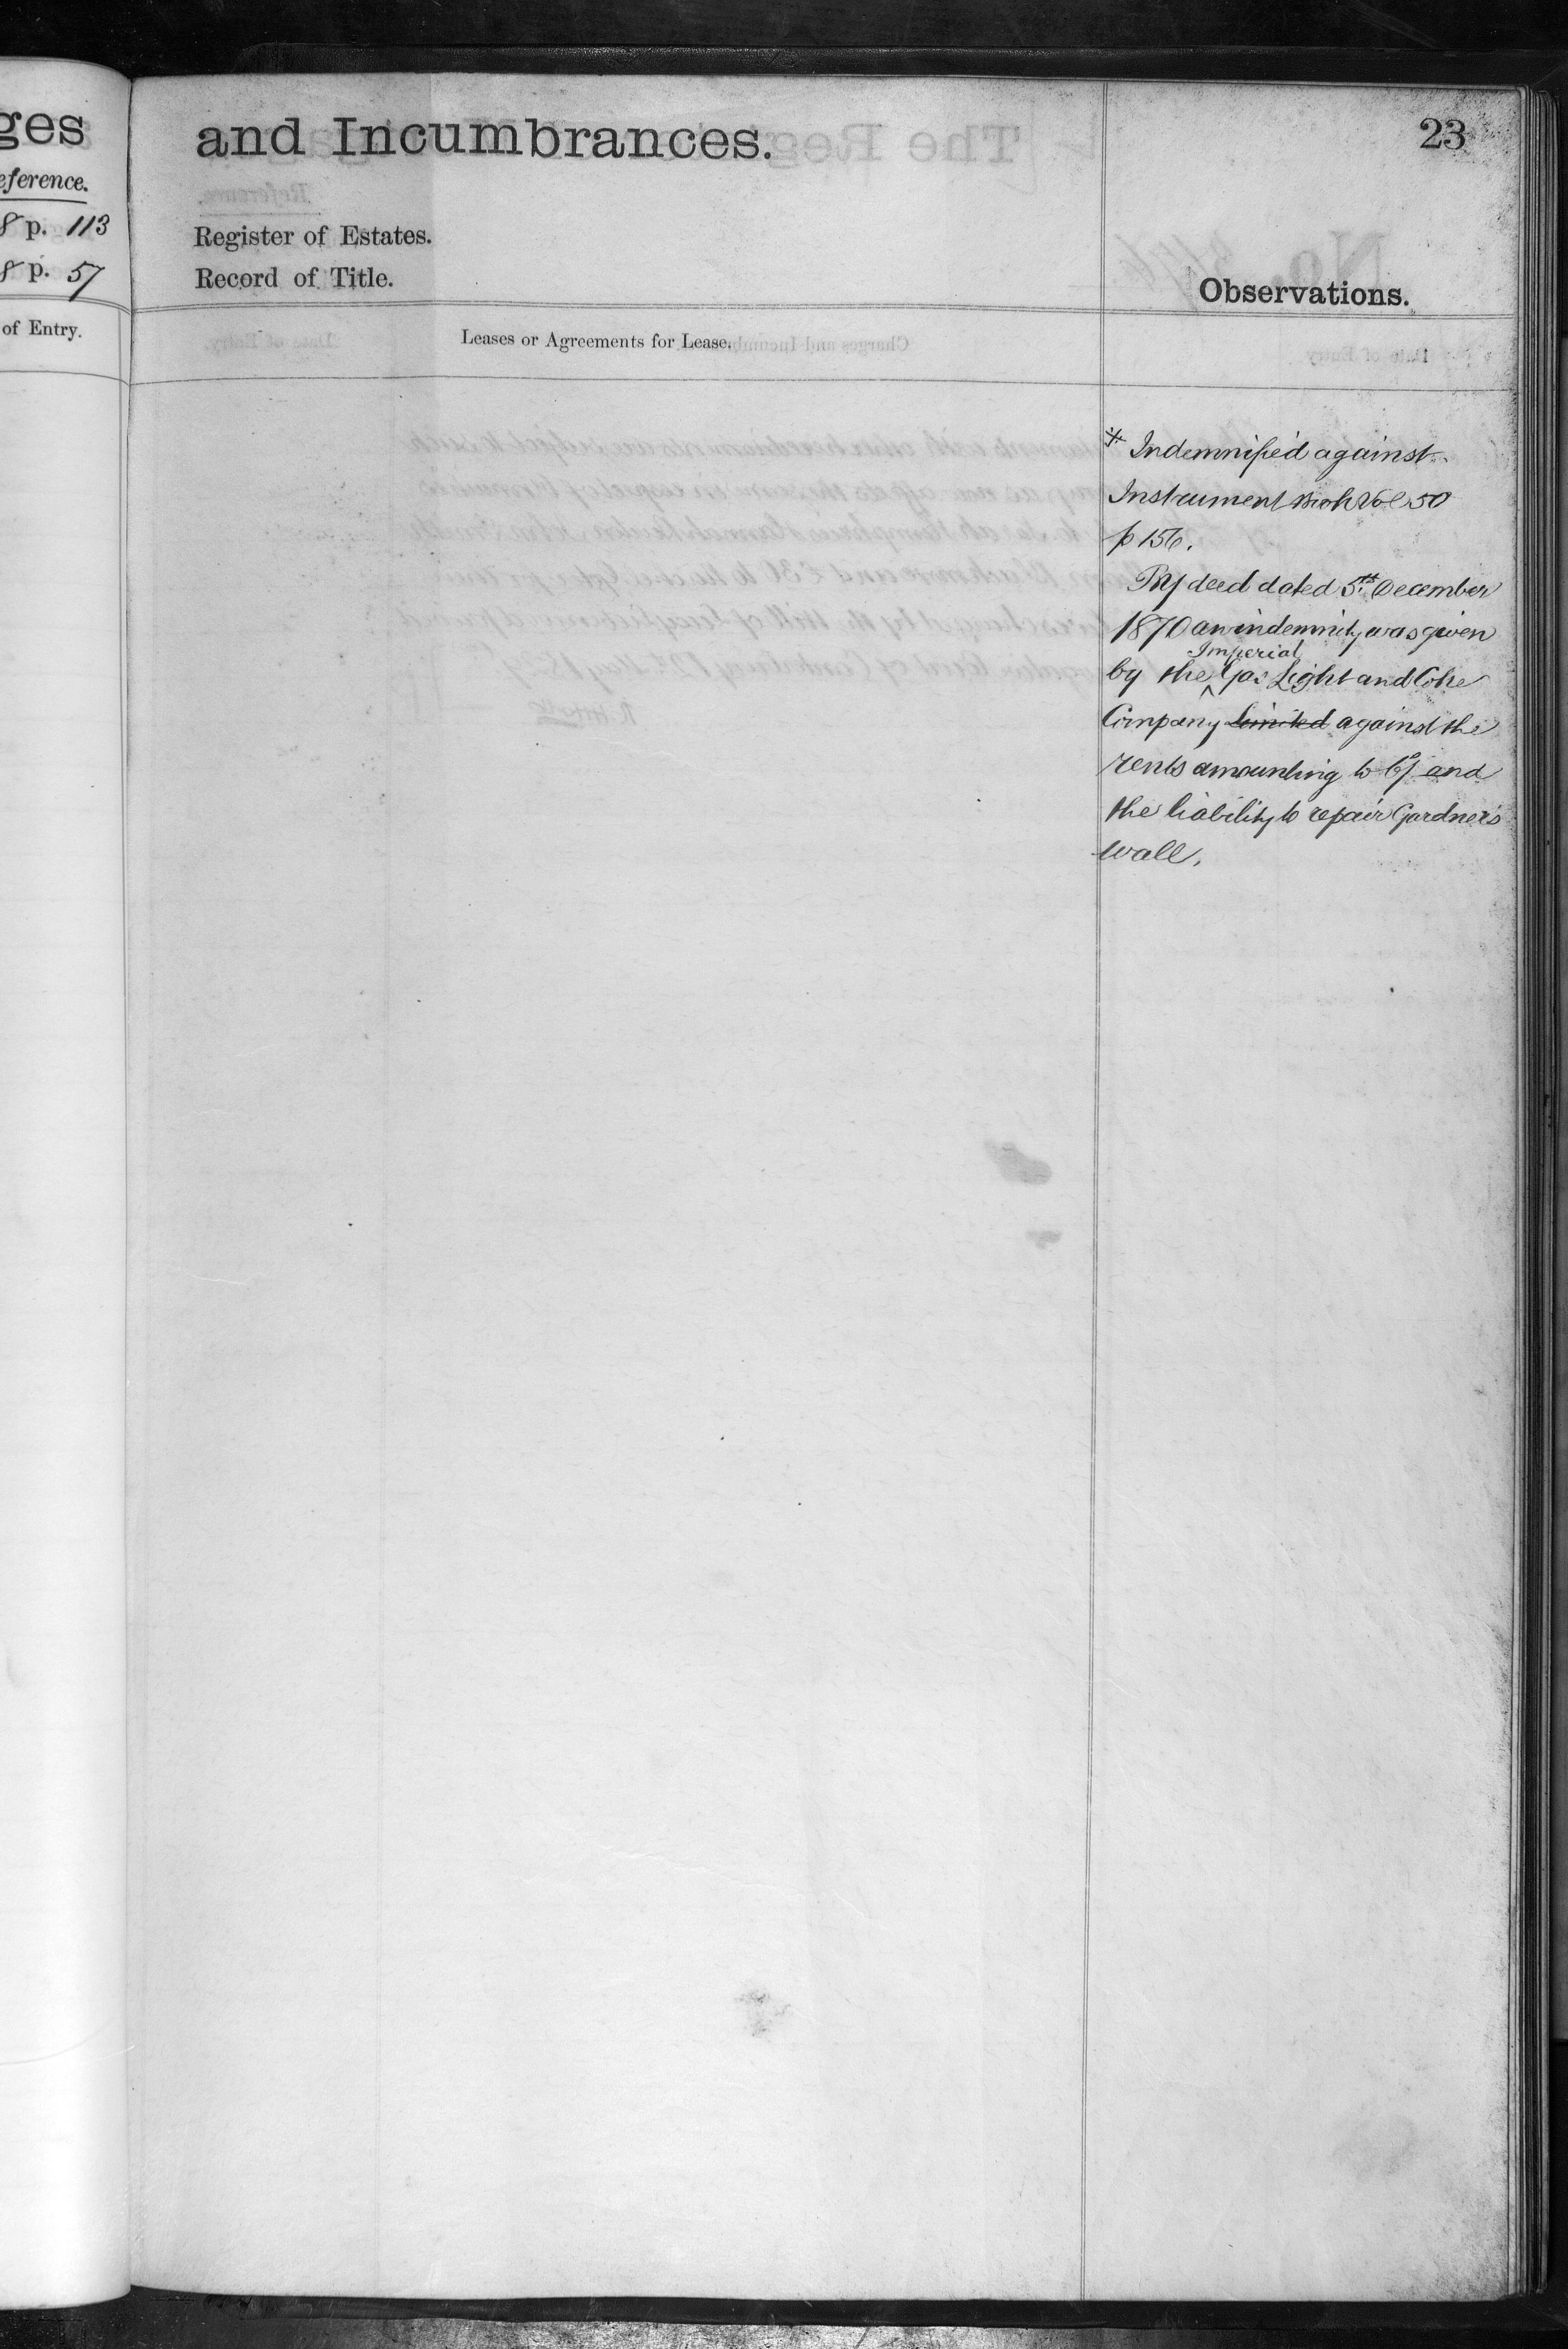 ges
eference.
8 p. 113
8 p. 57
of Entry.
and Incumbrances.
23
Register of Estates.
Record of Title.
Observations.
Leases or Agreements for Lease.
* Indemnified against
Instrument Book Vol 50
p 156.
By deed dated 5th December
1870 an indemnity was given
by the Imperial Gas Light and Coke
Company Limited against the
rents amounting to and
the liability to repair Gardner's
wall.